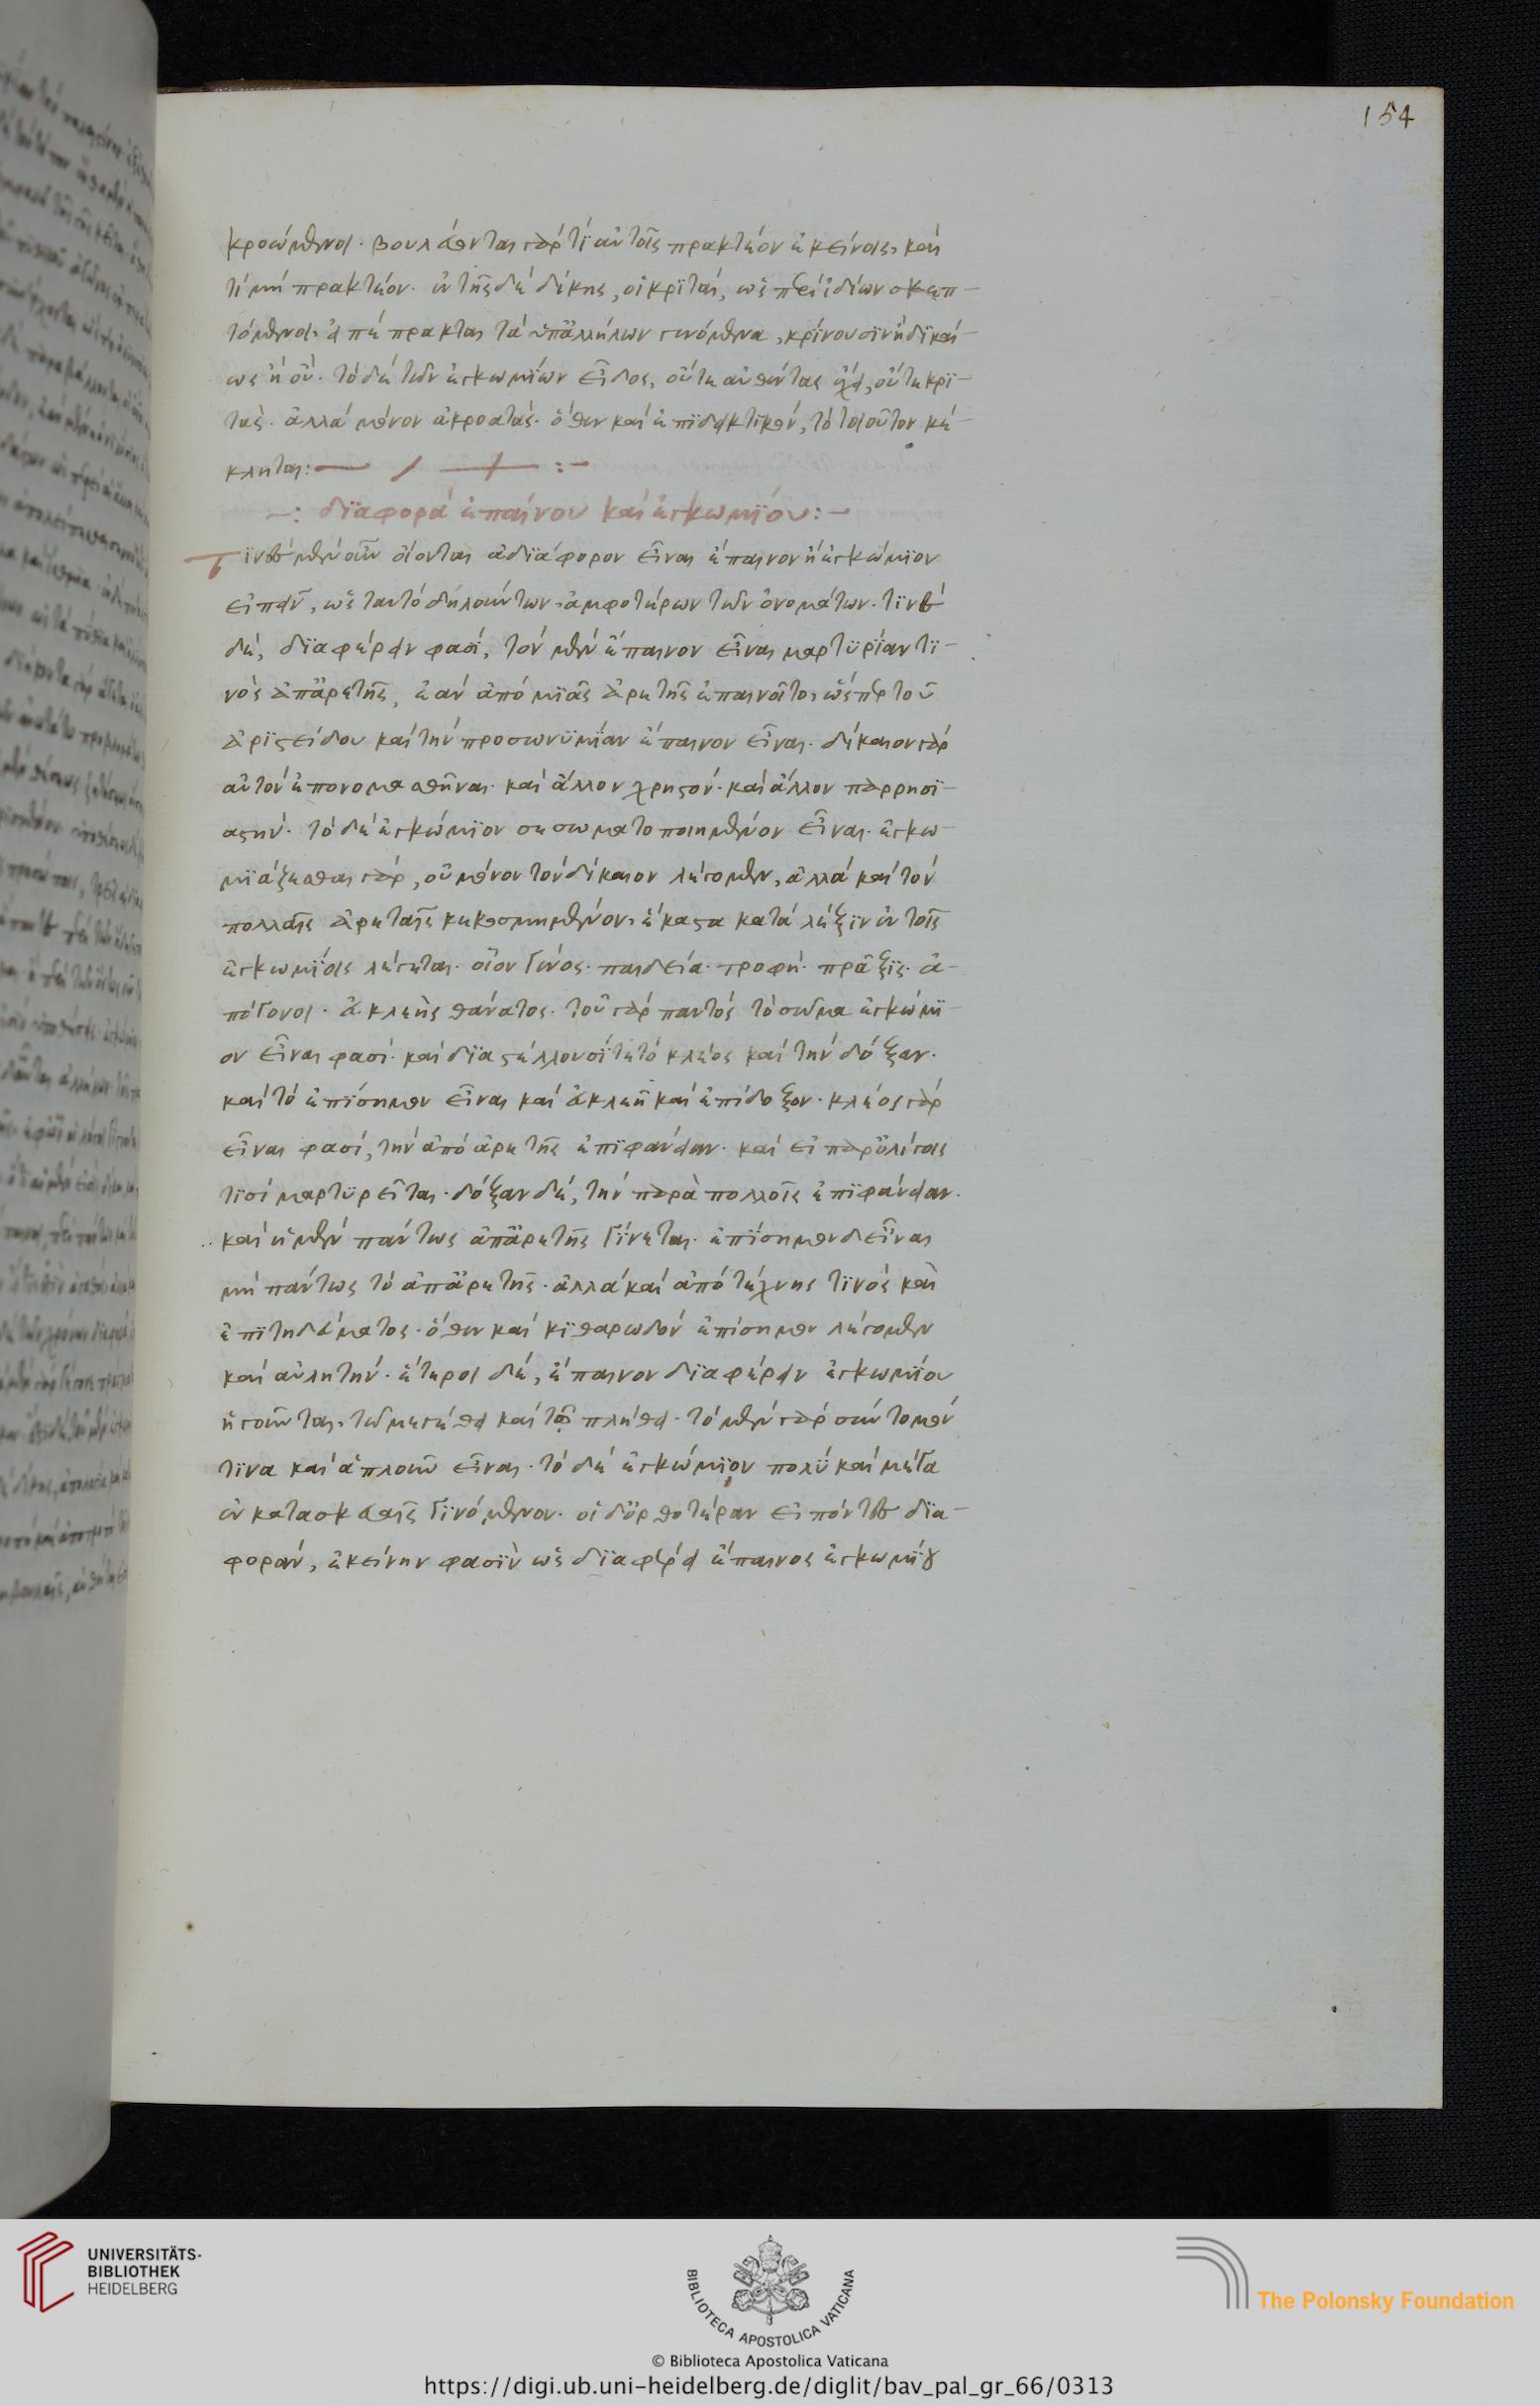 154
κροώμενοι· βουλεύονται γάρ τί αὐτοῖς πρακτέον ἐκείνοις, καὶ
τί μὴ πρακτέον. ἐν τῆς δὲ δίκης, οἱ κριταί, ὡς περὶ ἰδίων σκεπ-
τόμενοι, ἃ πέπρακται τὰ ὑπ' ἀλλήλων γινόμενα, κρίνουσιν ἢ δικαί-
ως ἢ οὔ. τὸ δὲ τῶν ἐγκωμίων εἶδος, οὔτε αὐθέντας ἔχει, οὔτε κρι-
τάς. ἀλλὰ μόνον ἀκροατάς. ὅθεν καὶ ἐπιδεικτικόν, τὸ τοιοῦτον κέ-
κληται:—
—: διαφορὰ ἐπαίνου καὶ ἐγκωμίου:—
Τινὲς μὲν οὖν οἴονται ἀδιάφορον εἶναι ἔπαινον ἢ ἐγκώμιον
εἰπεῖν, ὡς ταυτὸ δηλούντων ἀμφοτέρων τῶν ὀνομάτων. τινὲς
δέ, διαφέρειν φασί, τὸν μὲν ἔπαινον εἶναι μαρτυρίαν τι-
νὸς ἀπ' ἀρετῆς, ἐὰν ἀπὸ μιᾶς ἀρετῆς ἐπαινοῖτο, ὥσπερ τοῦ
Ἀριστείδου καὶ τὴν προσωνυμίαν ἔπαινον εἶναι. δίκαιον γὰρ
αὐτὸν ἐπονομασθῆναι. καὶ ἄλλον χρηστόν. καὶ ἄλλον παρρησι-
αστήν. τὸ δὲ ἐγκώμιον σεσωματοποιημένον εἶναι. ἐγκω-
μιάζεσθαι γάρ, οὐ μόνον τὸν δίκαιον λέγομεν, ἀλλὰ καὶ τὸν
πολλαῖς ἀρεταῖς κεκοσμημένον. ἕκαστα κατὰ λέξιν ἐν τοῖς
ἐγκωμίοις λέγεται. οἷον γένος. παιδεία. τροφή. πρᾶξις. ἀ-
πόγονοι. εὐκλεὴς θάνατος. τοῦ γὰρ παντὸς τὸ σῶμα ἐγκώμι-
ον εἶναι φασί. καὶ διαστέλλουσί τε τὸ κλέος καὶ τὴν δόξαν.
καὶ τὸ ἐπίσημον εἶναι καὶ εὐκλεῆ καὶ ἐπίδοξον. κλέος γὰρ
εἶναι φασί, τὴν ἀπὸ ἀρετῆς ἐπιφάνειαν. καὶ εἰ παρ' ὀλίγοις
τισὶ μαρτυρεῖται. δόξαν δέ, τὴν παρὰ πολλοῖς ἐπιφάνειαν.
καὶ ἡ μὲν πάντως ἀπ' ἀρετῆς γίνεται. ἐπίσημον δ' εἶναι
μὴ πάντως τὸ ἀπ' ἀρετῆς. ἀλλὰ καὶ ἀπὸ τέχνης τινὸς καὶ
ἐπιτηδεύματος. ὅθεν καὶ κιθαρωδὸν ἐπίσημον λέγομεν
καὶ αὐλητήν. ἕτεροι δέ, ἔπαινον διαφέρειν ἐγκωμίου
ἡγοῦνται, τῶ μεγέθει καὶ τῶ πλήθει. τὸ μὲν γὰρ σύντομόν
τινα καὶ ἁπλοῦν εἶναι. τὸ δὲ ἐγκώμιον πολὺ καὶ μέγα
ἐν κατασκευαῖς γινόμενον. οἱ δ' ὀρθοτέραν εἰπόντες δια-
φοράν, ἐκείνην φασὶν ὡς διαφέρει ἔπαινος ἐγκωμίου
UNIVERSITÄTS-
BIBLIOTHEK
HEIDELBERG
BIBLIOTECA APOSTOLICA VATICANA
The Polonsky Foundation
© Biblioteca Apostolica Vaticana
https://digi.ub.uni-heidelberg.de/diglit/bav_pal_gr_66/0313